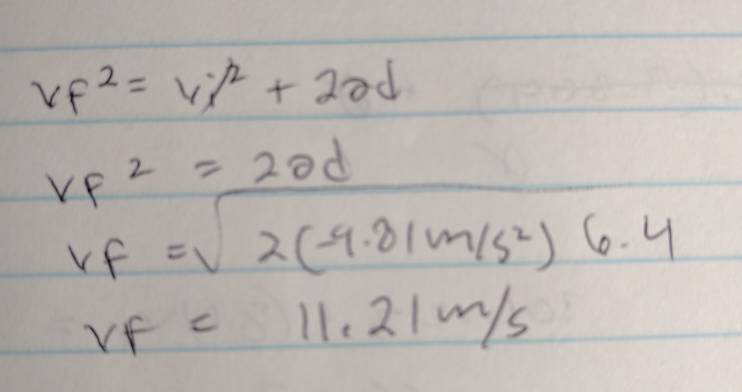 vf² = vi² + 2ad
vf² = 2ad
vf = √2(-9.81m/s²) 6.4
vf = 11.21 m/s